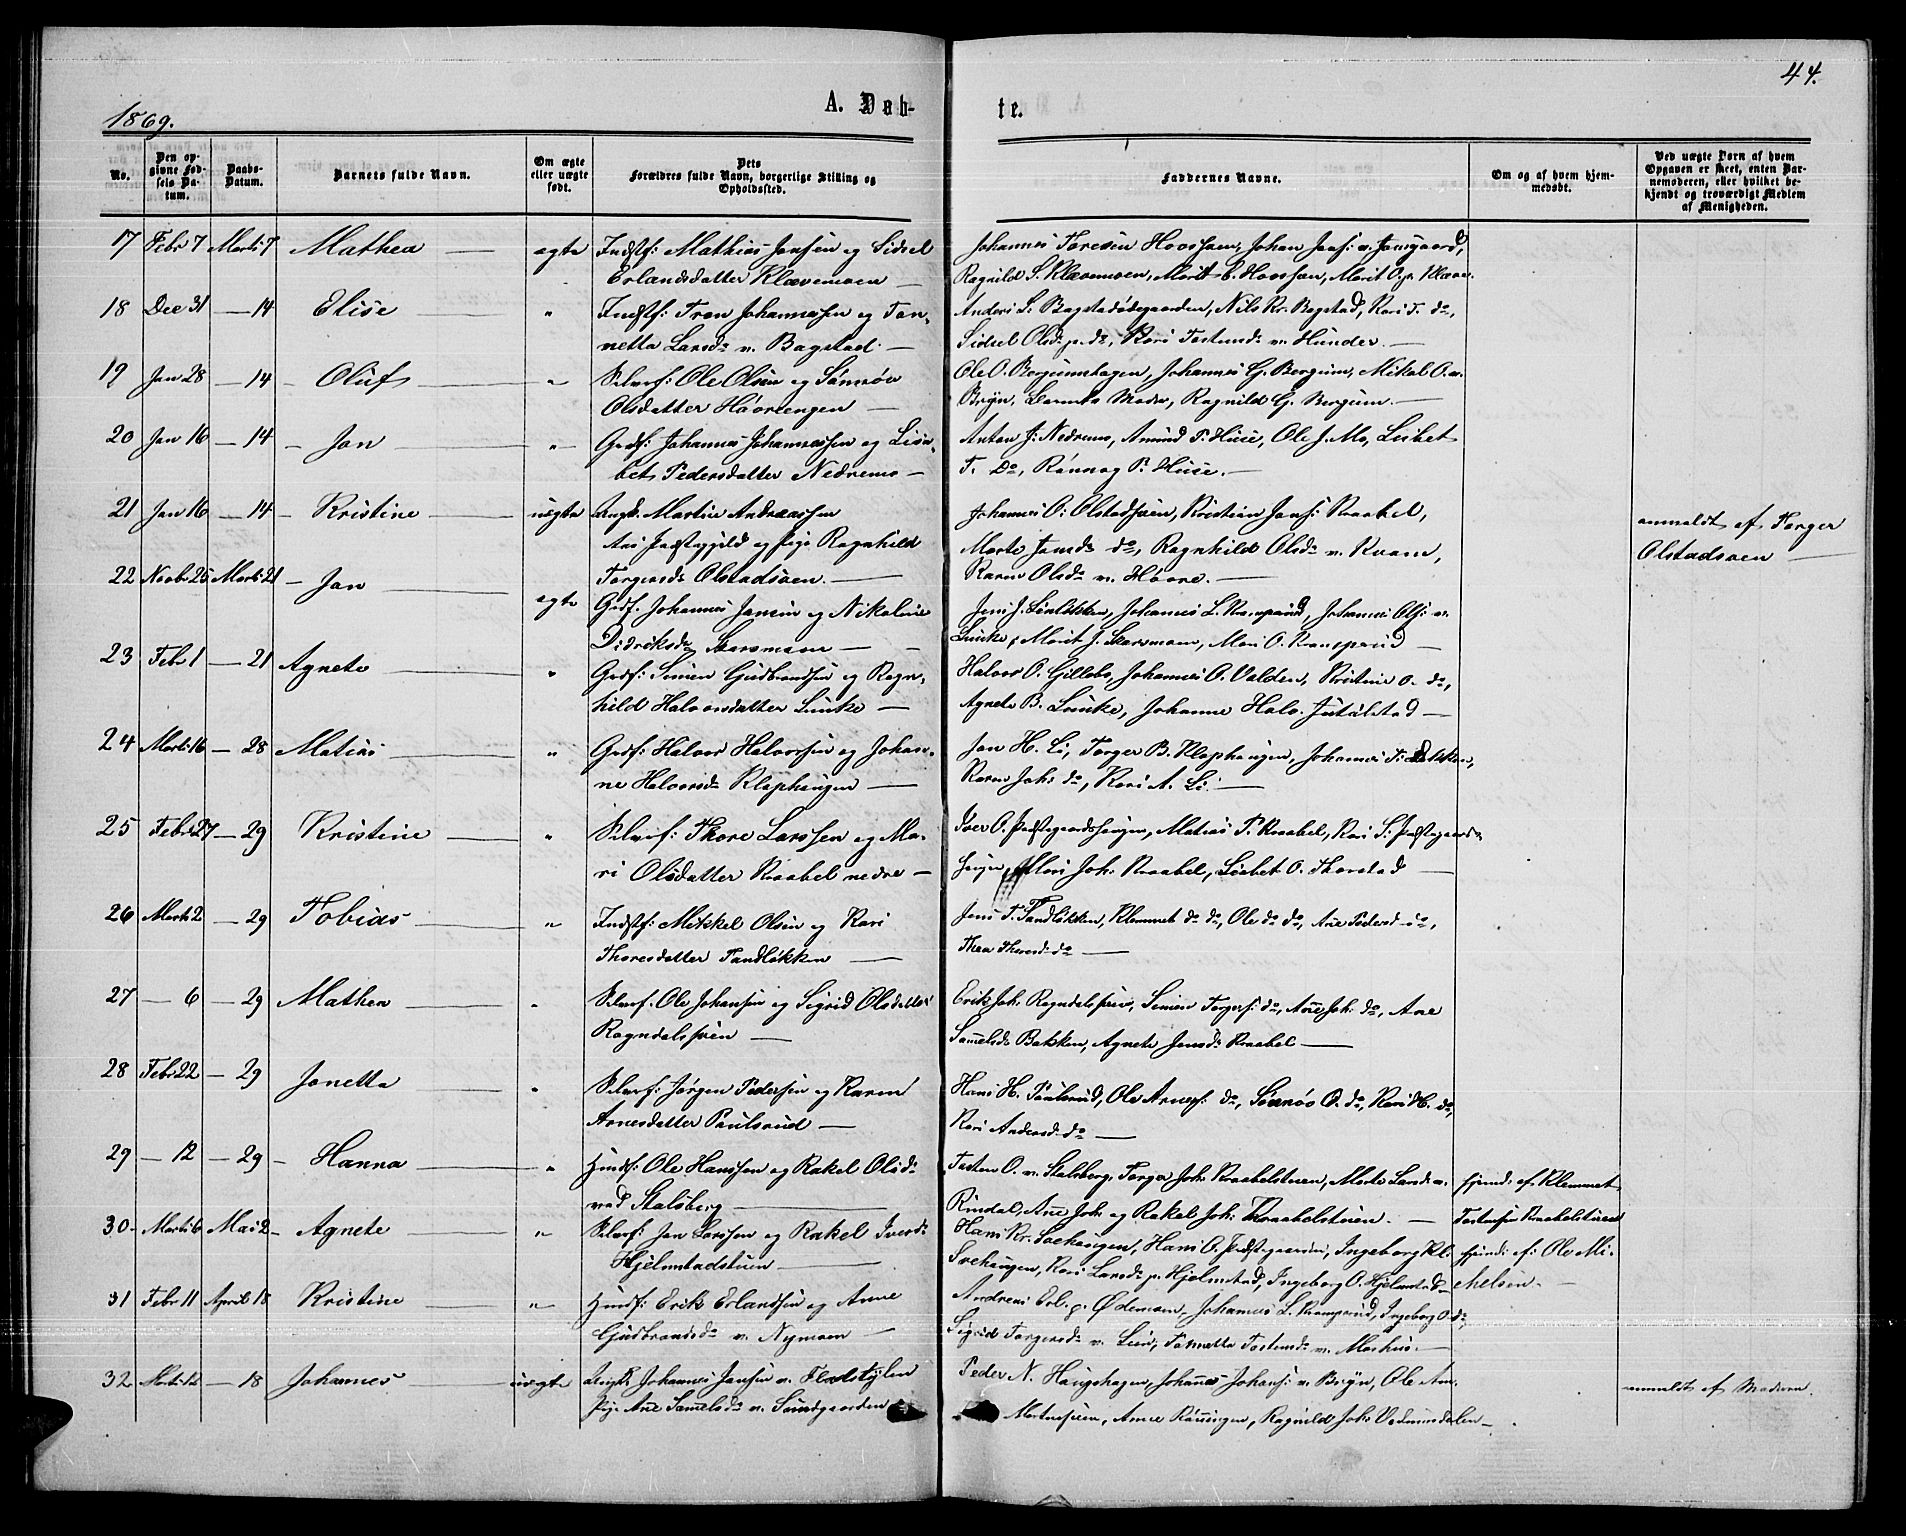 44.
1869.
A. Døb-
te.
No.
Den opgivne Fødsels Datum.
Daabs-Datum.
Barnets fulde Navn.
Om ægte eller uægte født.
Dets Forældres fulde Navn, borgerlige Stilling og Opholdssted.
Faddernes Navne.
Om og af hvem hjemmedøbt.
Ved uægte Børn af hvem Opgaven er skeet, enten Barnemoderen, eller hvilket bekjendt og troværdigt Medlem af Menigheden.
17 Febr 7 Marts 7 Mathea — ægte Indstf: Mathias Jansen og Sidsel
Erlandsdatter Klævemoen —
Johannes Toresen
Ragnild S. Klævemoen,
18 Dec 31 — 14 Elise „ Indstf: Tron Johannessen og Ton-
netta Larsdr v. Bagstad. —
Anders S. Bagstadødegaarden, Nils Kr. Bagstad, Kari T. do,
Sidsel Olsdr p. do, Kari Tostensdr v. Hunder. —
19 Jan 28 — 14 — Oluf — „ Selvef: Ole Olsen og Sønnøv
Olsdatter Høvrengen —
Ole O. Bergumshagen, Johannes G. Bergum, Mikal O. v.
Bryn, Barnets Moder, Ragnild G. Bergum. —
20 Jan 16 — 14 — Jon — „ Grdf: Johannes Johannessen og Lisa-
bet Pedersdatter Nedremo —
Anton J. Nedremo, Amund P. Huse, Ole J. Mo, Lisbet
T. Do, Rønnog P. Huse. —
21 Jan 16 — 14 — Kristine — uægte Ungk. Martin Andreassen
Aas Præstegjeld og Pige Ragnhild
Torgersdr Olstadsven. —
Johannes O. Olstadsven, Kristian Jansf: Kraabel,
Marte Jansdr do, Ragnhild Olsdr v. Kvam,
Karen Olsdr v. Høvre. —
anmeldt af Torger
Olstadsven —
22 Novbr 25 Marts 21 — Jan — ægte Grdf. Johannes Jansen og Nikoline
Didriksdr Skarsmoen —
Johannes L. Kramprud, Johannes Ols: v.
Lunke, Marit J. Skarsmoen, Mari O. Kramprud —
23 Febr 1 — 21 Agnete — „ Grdf: Simen Gudbrandsen og Ragn-
hild Halvorsdatter Lunke —
Halvor O. Gillebo, Johannes O. Valden, Kristine O. do,
Agnete B. Lunke, Johanne Halv. Jutulstad —
24 Marts 16 — 28 Matias — „ Grdf: Halvor Halvorsen og Johan-
ne Halvorsdr Klaphaugen —
Jon H. Li, Torger B. Klaphaugen, Johannes T. Bakken,
Karen Joh: do, Kari A. Li. —
25 Febr 27 — 29 Kristine — „ Selvef: Thore Larssen og Ma-
ri Olsdatter Kraabel nedre —
Iver O. Præstegaardshagen, Matias P. Kraabel, Kari S. Præstegaards-
hagen, Mari Joh: Kraabel, Lisbet O. Thorstad —
26 Marts 2 — 29 Tobias — „ Indstf: Mikkel Olsen og Kari
Thoresdatter Sandløkken —
Jens T. Sandløkken, Klemmet do do, Ole do do, Ane Pedersd do,
Thea Thoresd. do —
27 — 6 — 29 Mathea — „ Selvef. Ole Johansen og Sigrid Olsdatter
Rogndalsveen —
Erik Joh. Rogndalsveen, Simen Torgers: do, Ane Joh: do, Ane
Samuelsdr Bakken, Agnete Jonsdr Kraabel —
28 Febr 22 — 29 Jonetta — „ Selvef: Jørgen Pedersen og Karen
Arnesdatter Paulsrud —
Hans H. Paulsrud, Ole Arnesf: do, Sønnøv O. do, Kari H. do,
Kari Andersd: do —
29 — 12 — 29 — Hanna — „ Husf: Ole Hanssen og Rakel Olsdr
ved Stalsberg —
Tosten O. v. Stalsberg, Torger Joh: Kraabelstuen, Marte Larsdr v.
Rindal, Ane Joh: og Rakel Joh: Kraabelstuen. —
hjemd: af Klemmet
Tostensen Kraabelstuen
30 — Marts 6 Mai 2 — Agnete — „ Selvef: Jon Larssen og Rakel Iversdr
Hjelmstadstuen —
Hans Kr. Svehaugen, Hans O. Præstegaarden, Ingeborg Kl:
Svehaugen, Kari Larsdr p. Hjelmstad, Ingeborg O. Hjelmstad —
hjemd: af: Ole Mi-
chelsen. —
31 Febr 11 April 18 Kristine — „ Husf: Erik Erlandsen og Anne
Gudbrandsdr v. Nymoen —
Andreas Erl. p. Ødemoen, Johannes L. Kramprud, Ingeborg O. do,
Sigrid Torgersdr v. Lien, Tonnetta Tostensdr v. Morhus. —
32 Marts 12 — 18 Johannes — uægte Ungk. Johannes Jansen v. Flatstylen
Pige Ane Samuelsdr v. Sandgaarden
Peder N. Haugshagen, Johannes Johansf: v. Bryn, Ole
Martuseien, Anne Rønningen, Ragnild Joh:
anmeldt af Moderen.